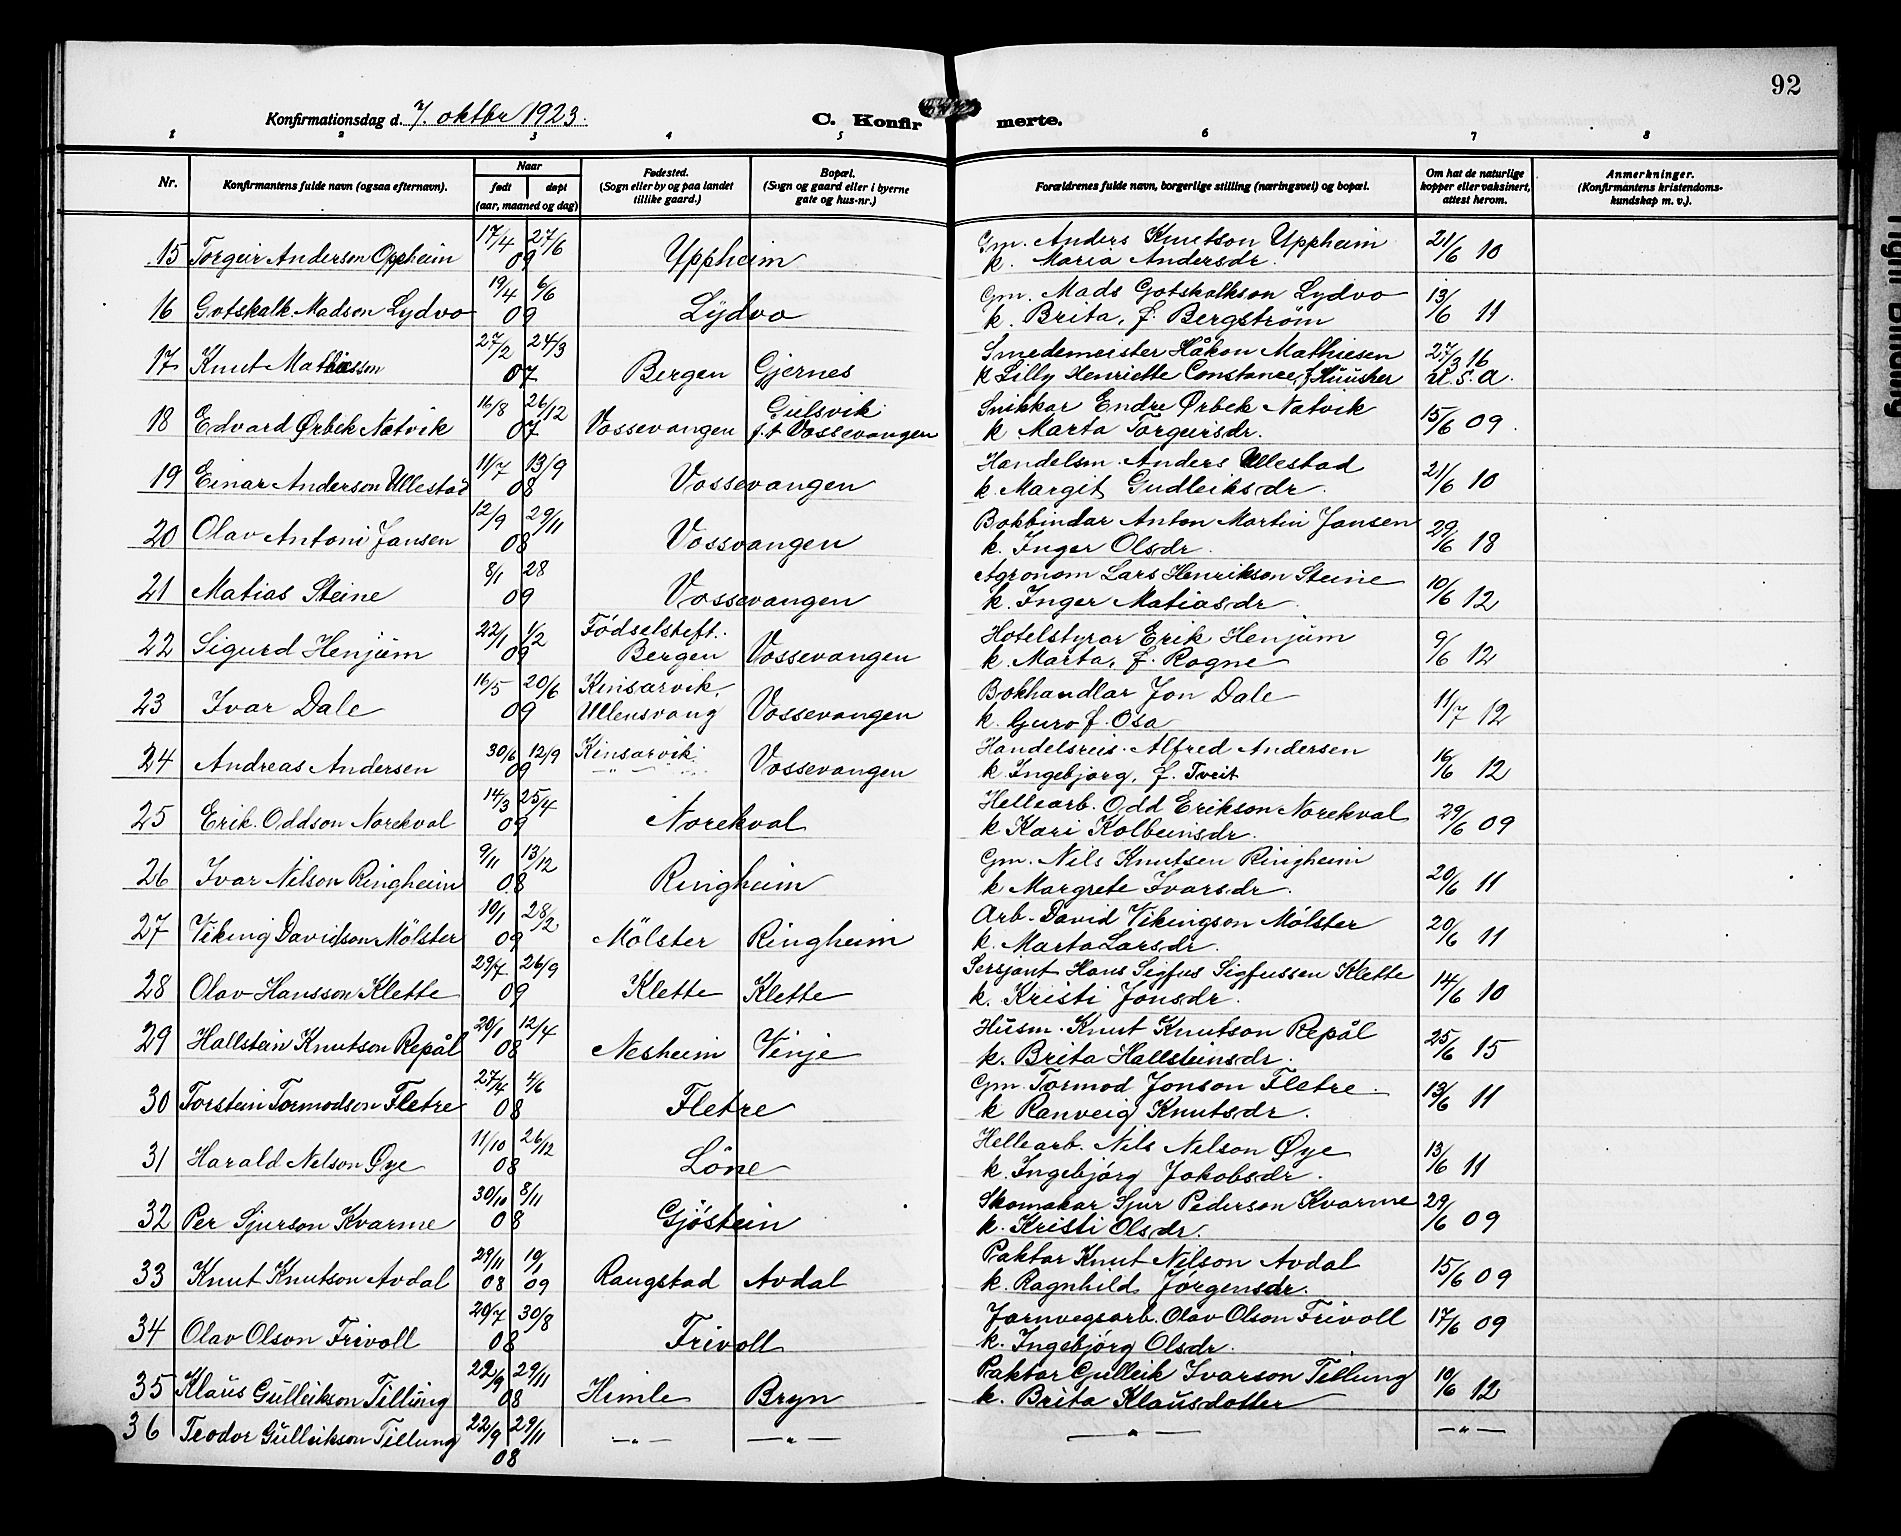 92
Konfirmationsdag d. 7. oktbr 1923.
C. Konfirmerte.
1 2 3 4 5 6 7 8
Nr. Konfirmantens fulde navn (ogsaa efternavn). Naar født døpt (aar, maaned og dag) Fødested. (Sogn eller by og paa landet tillike gaard.) Bopæl. (Sogn og gaard eller i byerne gate og hus-nr.) Forældrenes fulde navn, borgerlige stilling (næringsvei) og bopæl. Om hat de naturlige kopper eller vaksinert, attest herom. Anmerkninger. (Konfirmantens kristendomskundskap m. v.).
15 Torgeir Anderson Oppheim 17/4 27/6 09 Uppheim Gm. Anders Knutson Uppheim k. Maria Andersdr. 21/6 10
16 Gotskalk Madson Lydvo 19/4 6/6 09 Lydvo Gm. Mads Gotskalkson Lydvo k. Brita, f. Bergström 13/6 11
17 Knut Mathiessen 27/2 24/3 07 Bergen Gjernes Smedemeister Håkon Mathiesen k Lilly Henriette Constance, f 27/3 16 U.S.A.
18 Edvard Ørbek Nætvik 16/8 26/12 07 Vossevangen Gulsvik f.t Vossevangen Snikkar Endre Ørbek Natvik k Marta Torgeirsdr. 15/6 09.
19 Einar Anderson Ullestad 11/7 13/9 08 Vossevangen Handelsm. Anders Ullestad k. Margit Gudleiksdr. 21/6 10
20 Olav Antoni Jansen 12/9 29/11 08 Vossvangen Bokbindar Anton Martin Jansen k. Inger Olsdr. 29/6 18
21 Matias Steine 8/1 28 09 Vossevangen Agronom Lars Henrikson Steine k. Inger Matiasdr. 10/6 12
22 Sigurd Henjum 22/1 1/2 09 Födselstift. Bergen Vossevangen Hotelstyrar Erik Henjum k. Marta, f. Rogne 9/6 12
23 Ivar Dale 16/5 20/6 09 Kinsarvik, Ullensvang Vossevangen Bokhandlar Jon Dale k. Guro f. Osa 11/7 12
24 Andreas Andersen 30/6 12/9 09 Kinsarvik. -"- Vossevangen Handelsreis. Alfred Andersen k Ingebjorg, f. Tveit 16/6 12
25 Erik Oddson Norekval 14/3 25/4 09 Norekval Hellearb. Odd Erikson Norekval k Kari Kolbeinsdr. 29/6 09
26 Ivar Nilson Ringheim 9/11 13/12 08 Ringheim Gm. Nils Knutsen Ringheim k Margrete Ivarsdr. 20/6 11
27 Viking Davidson Mölster 19/1 28/2 09 Mölster Ringheim Arb. David Vikingson Mölster k. Marta Larsdr. 20/6 11
28 Olav Hansson Klette 29/7 26/9 09 Klette Klette Sersjant Hans Sigfus Sigfussen Klette k. Kristi Jonsdr. 14/6 10
29 Hallstein Knutson Repål 20/1 12/4 08 Nesheim Vinje Husm. Knut Knutson Repål k. Brita Hallsteinsdr. 25/6 15
30 Torstein Tormodson Fletre 27/4 4/6 08 Fletre Gm. Tormod Jonson Fletre. k Ranveig Knutsdr. 13/6 11
31 Harald Nilson Øye 11/10 26/12 08 Löne Hellearb. Nils Nilson Øye k. Ingebjörg Jakobsdr. 13/6 11
32 Per Sjurson Kvarme 30/10 8/11 08 Gjöstein Skomakar Sjur Pederson Kvarme k. Kristi Olsdr. 29/6 09
33 Knut Knutson Avdal 29/11 19/1 08 09 Raugstad Avdal Paktar Knut Nilson Avdal k. Ragnhild Jörgensdr. 15/6 09
34 Olav Olson Frivoll 20/7 30/8 08 Frivoll Jarnvegsarb. Olav Olson Frivoll k. Ingebjörg Olsdr. 17/6 09
35 Klaus Gulleikson Tillung 22/9 29/11 08 Himle Bryn Paktar Gulleik Ivarson Tillung k. Brita Klausdotter 10/6 12
36 Teodor Gulleikson Tillung 22/9 29/11 08 -"- -"- -"- -"-